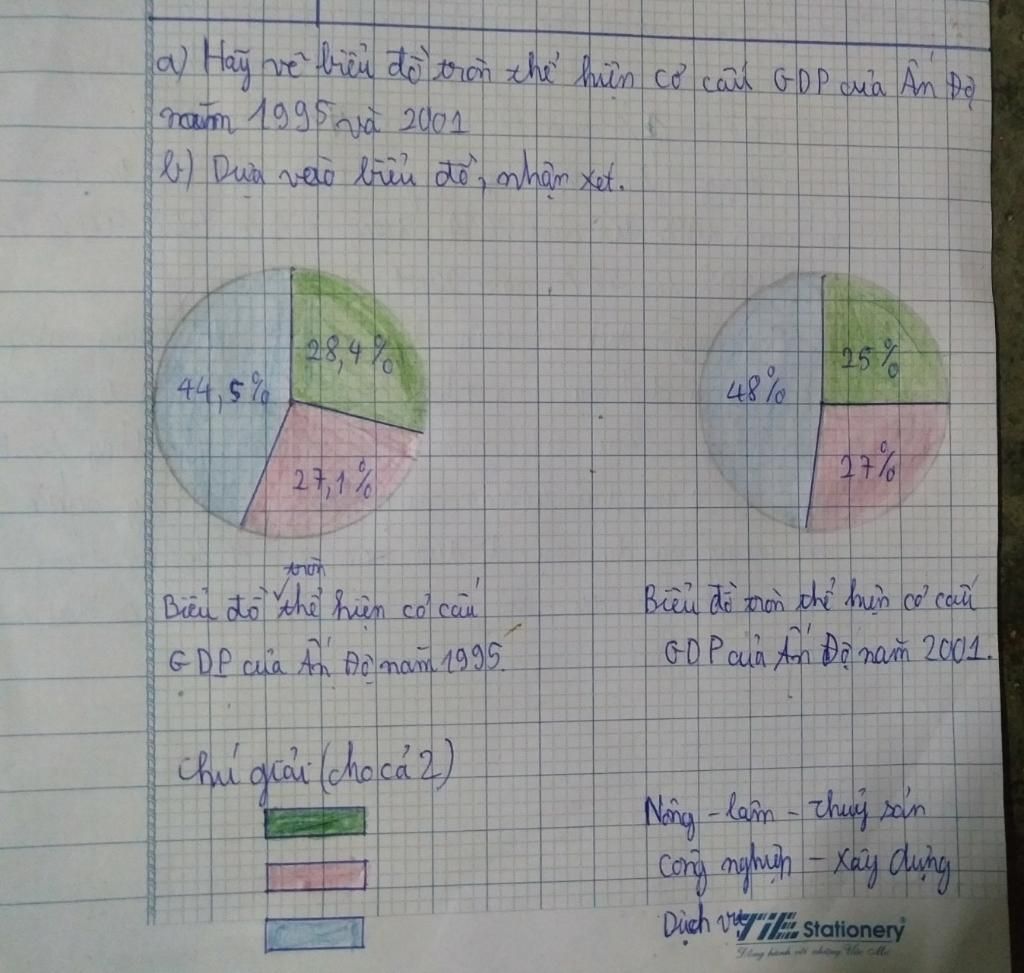 a) Hãy vẽ biểu đồ tròn thể hiện cơ cấu GDP của Ấn Độ
năm 1995 và 2001
b) Dựa vào biểu đồ, nhận xét.
28,4%
44,5%
27,1%
25%
48%
27%
Biểu đồ tròn thể hiện cơ cấu
GDP của Ấn Độ năm 1995
Biểu đồ tròn thể hiện cơ cấu
GDP của Ấn Độ năm 2001.
Chú giải (cho cả 2)
Nông - lâm - thuỷ sản
Công nghiệp - xây dựng
Dịch vụ
TIE Stationery